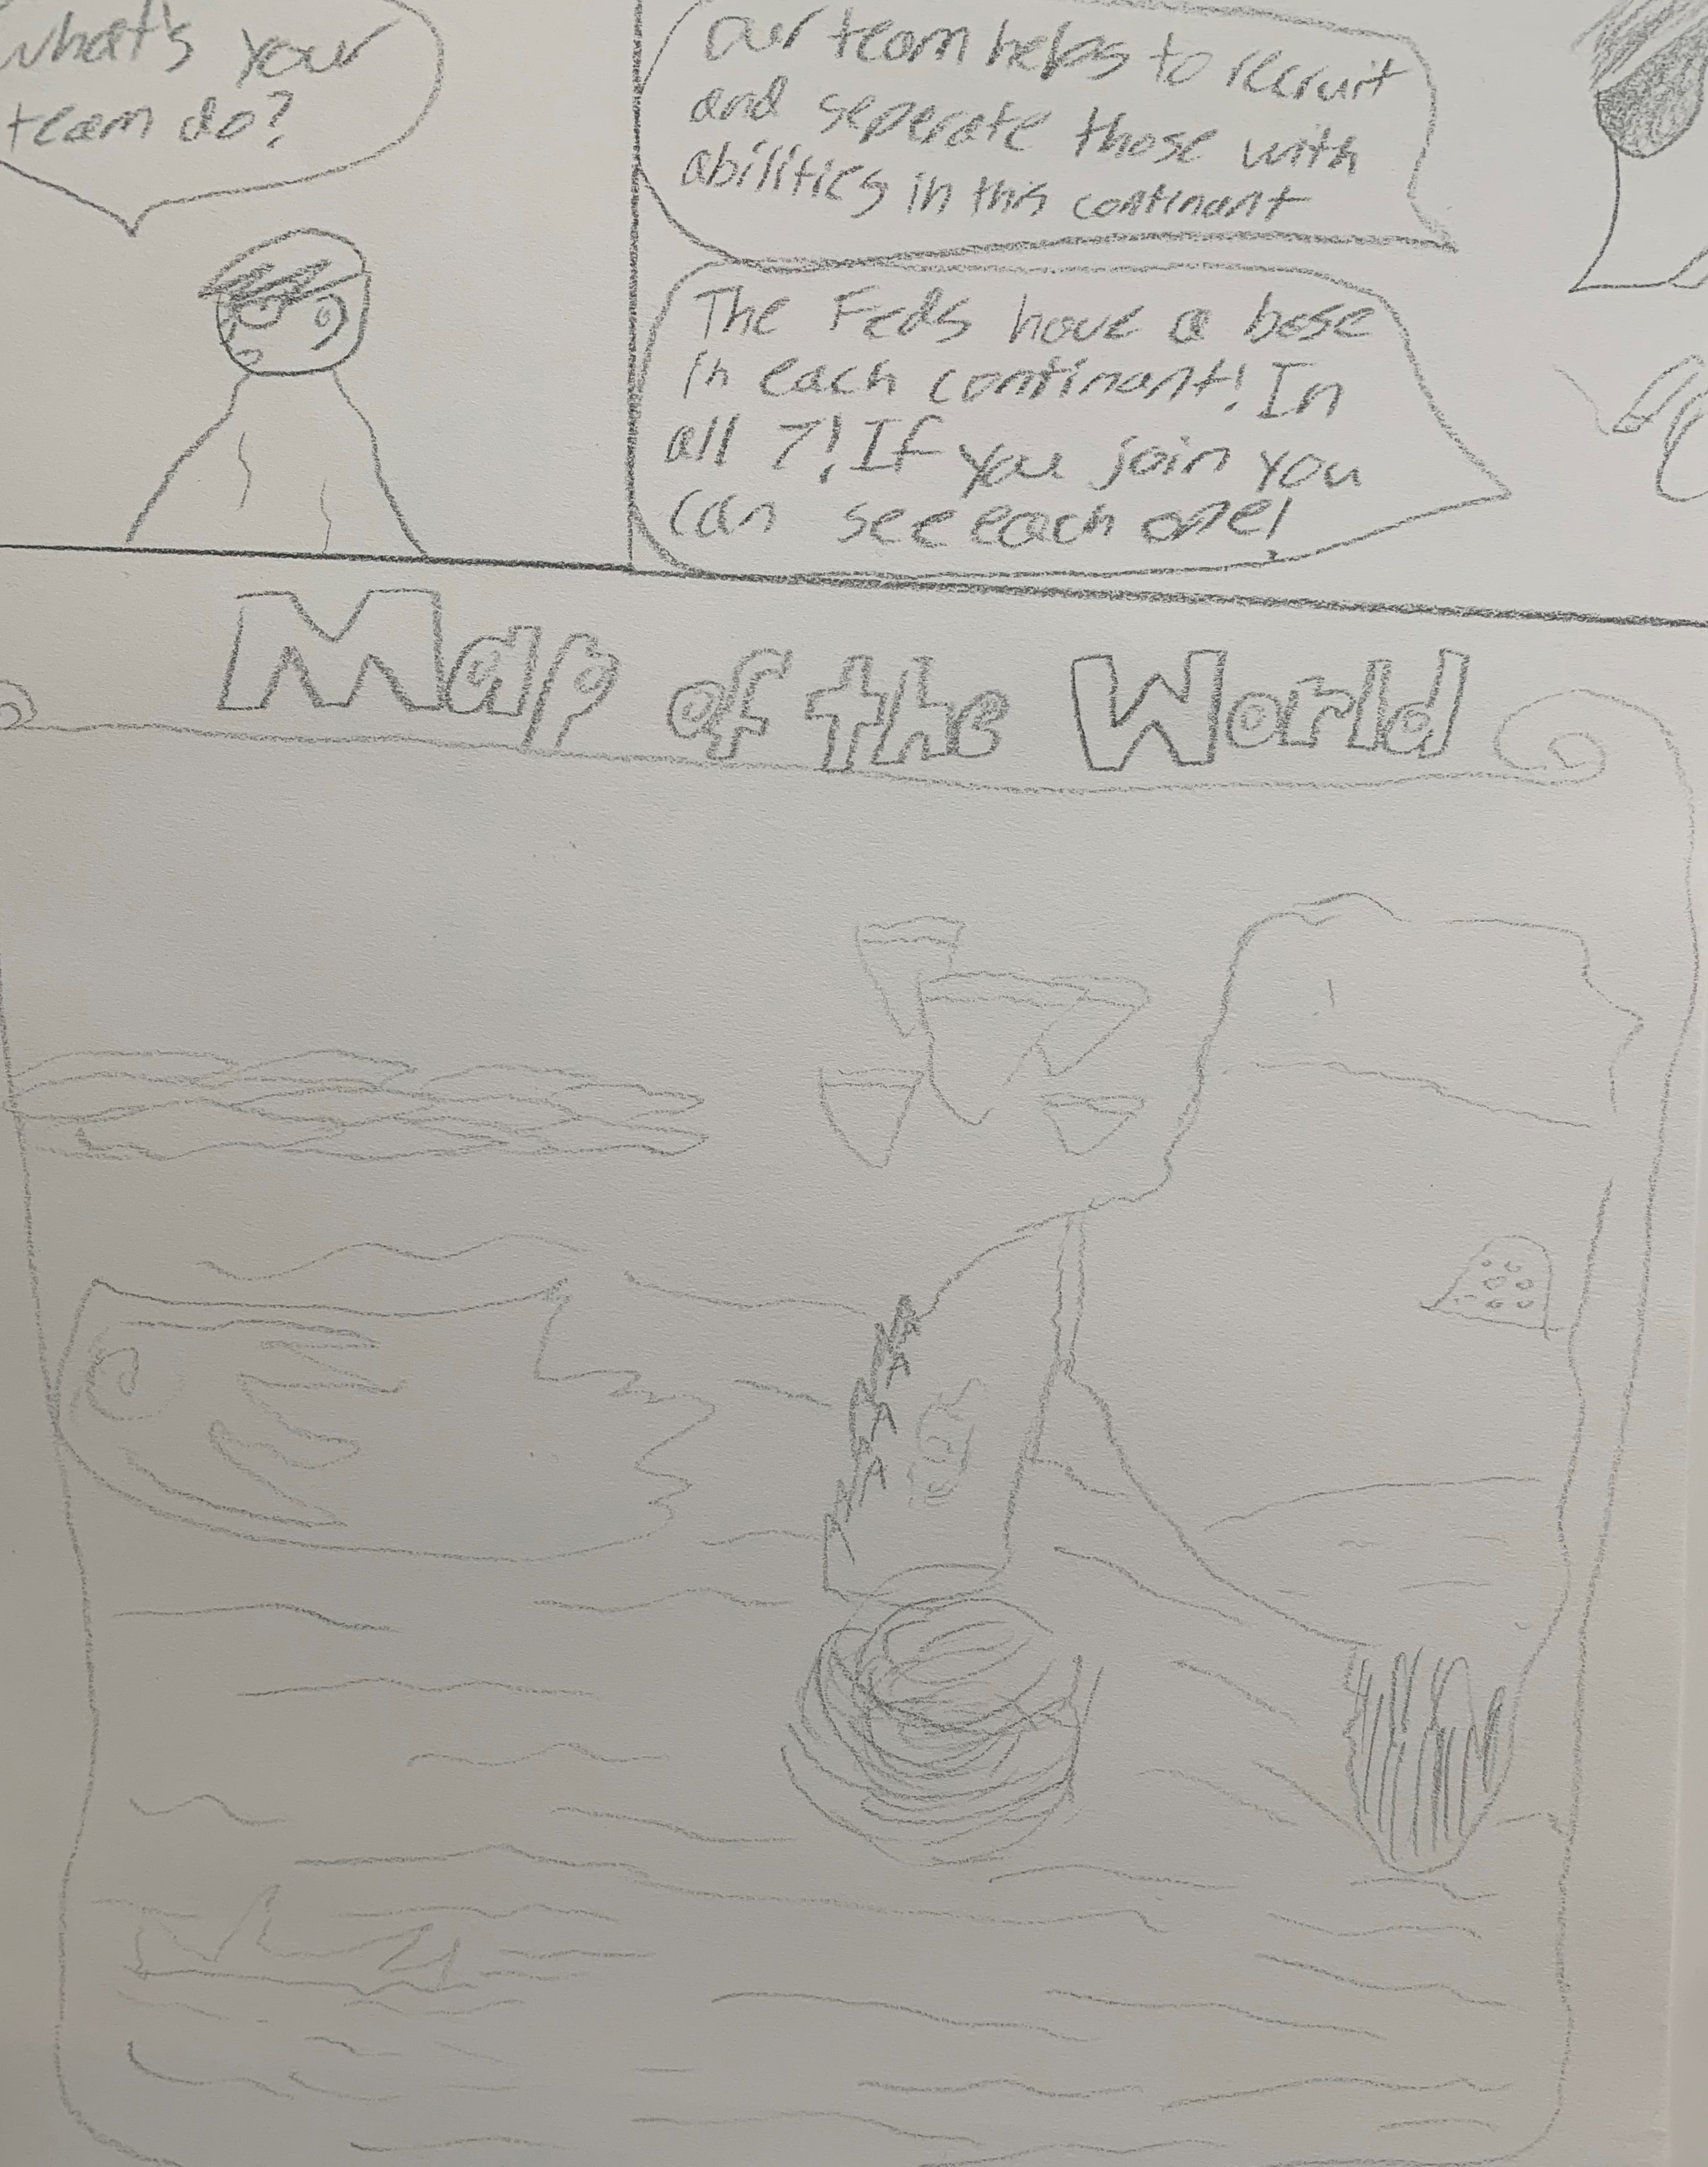 what's your
team do?
Our team helps to recruit
and seperate those with
abilities in this continant
The Feds have a base
in each continant! In
all 7! If you join you
can see each one!
Map of the World